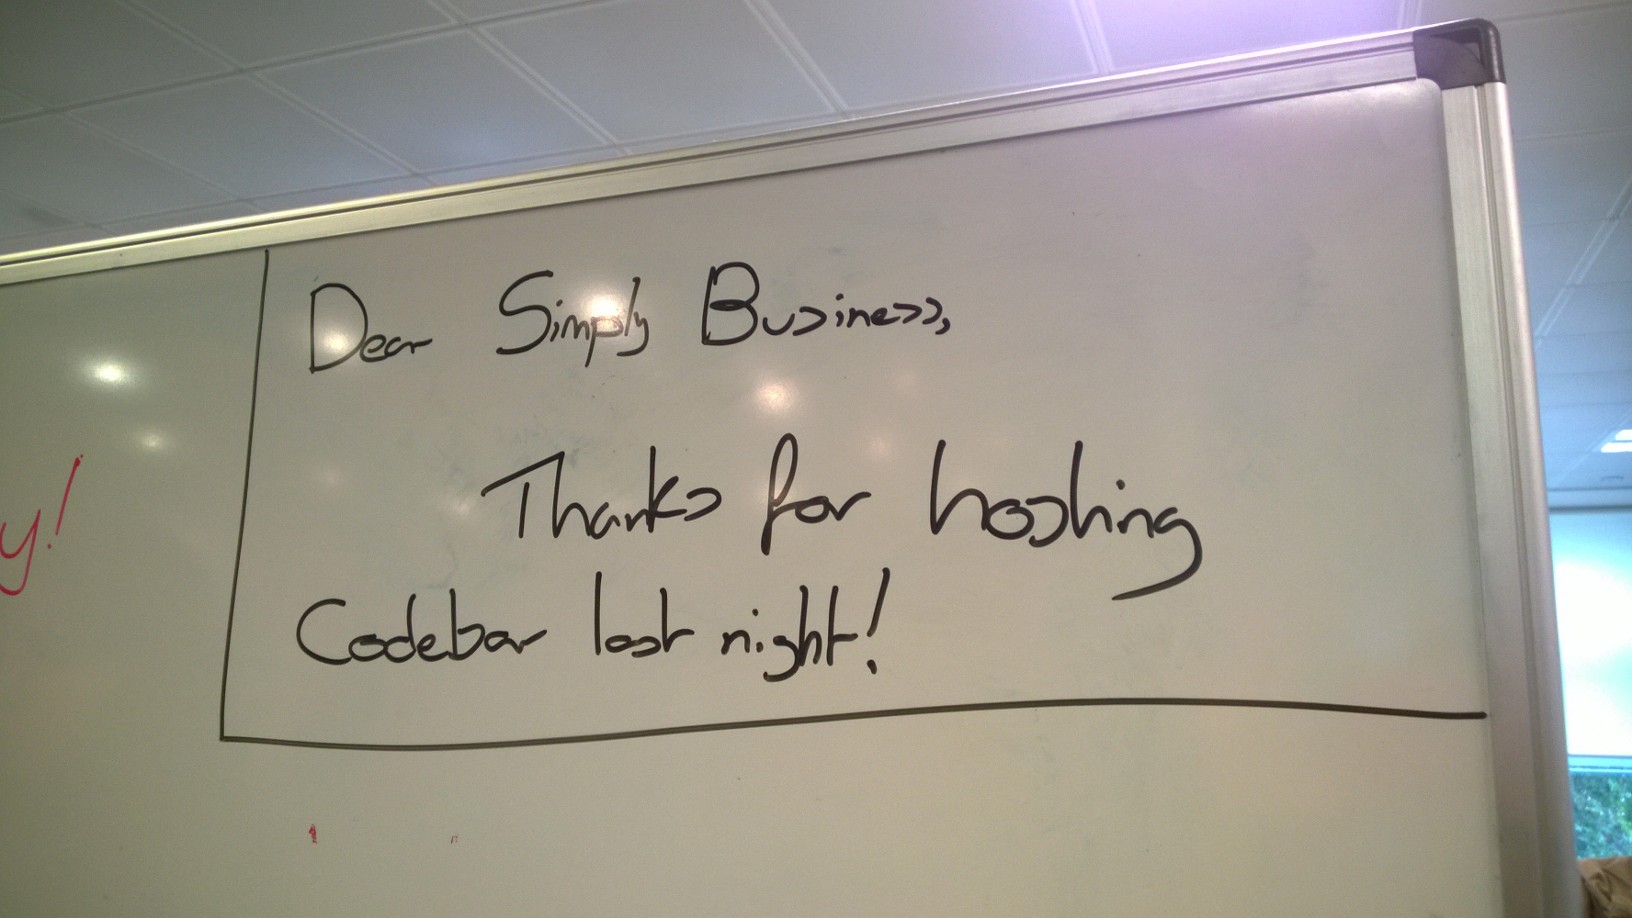 Dear Simply Business,
Thanks for hosting
Codebar last night!
y!